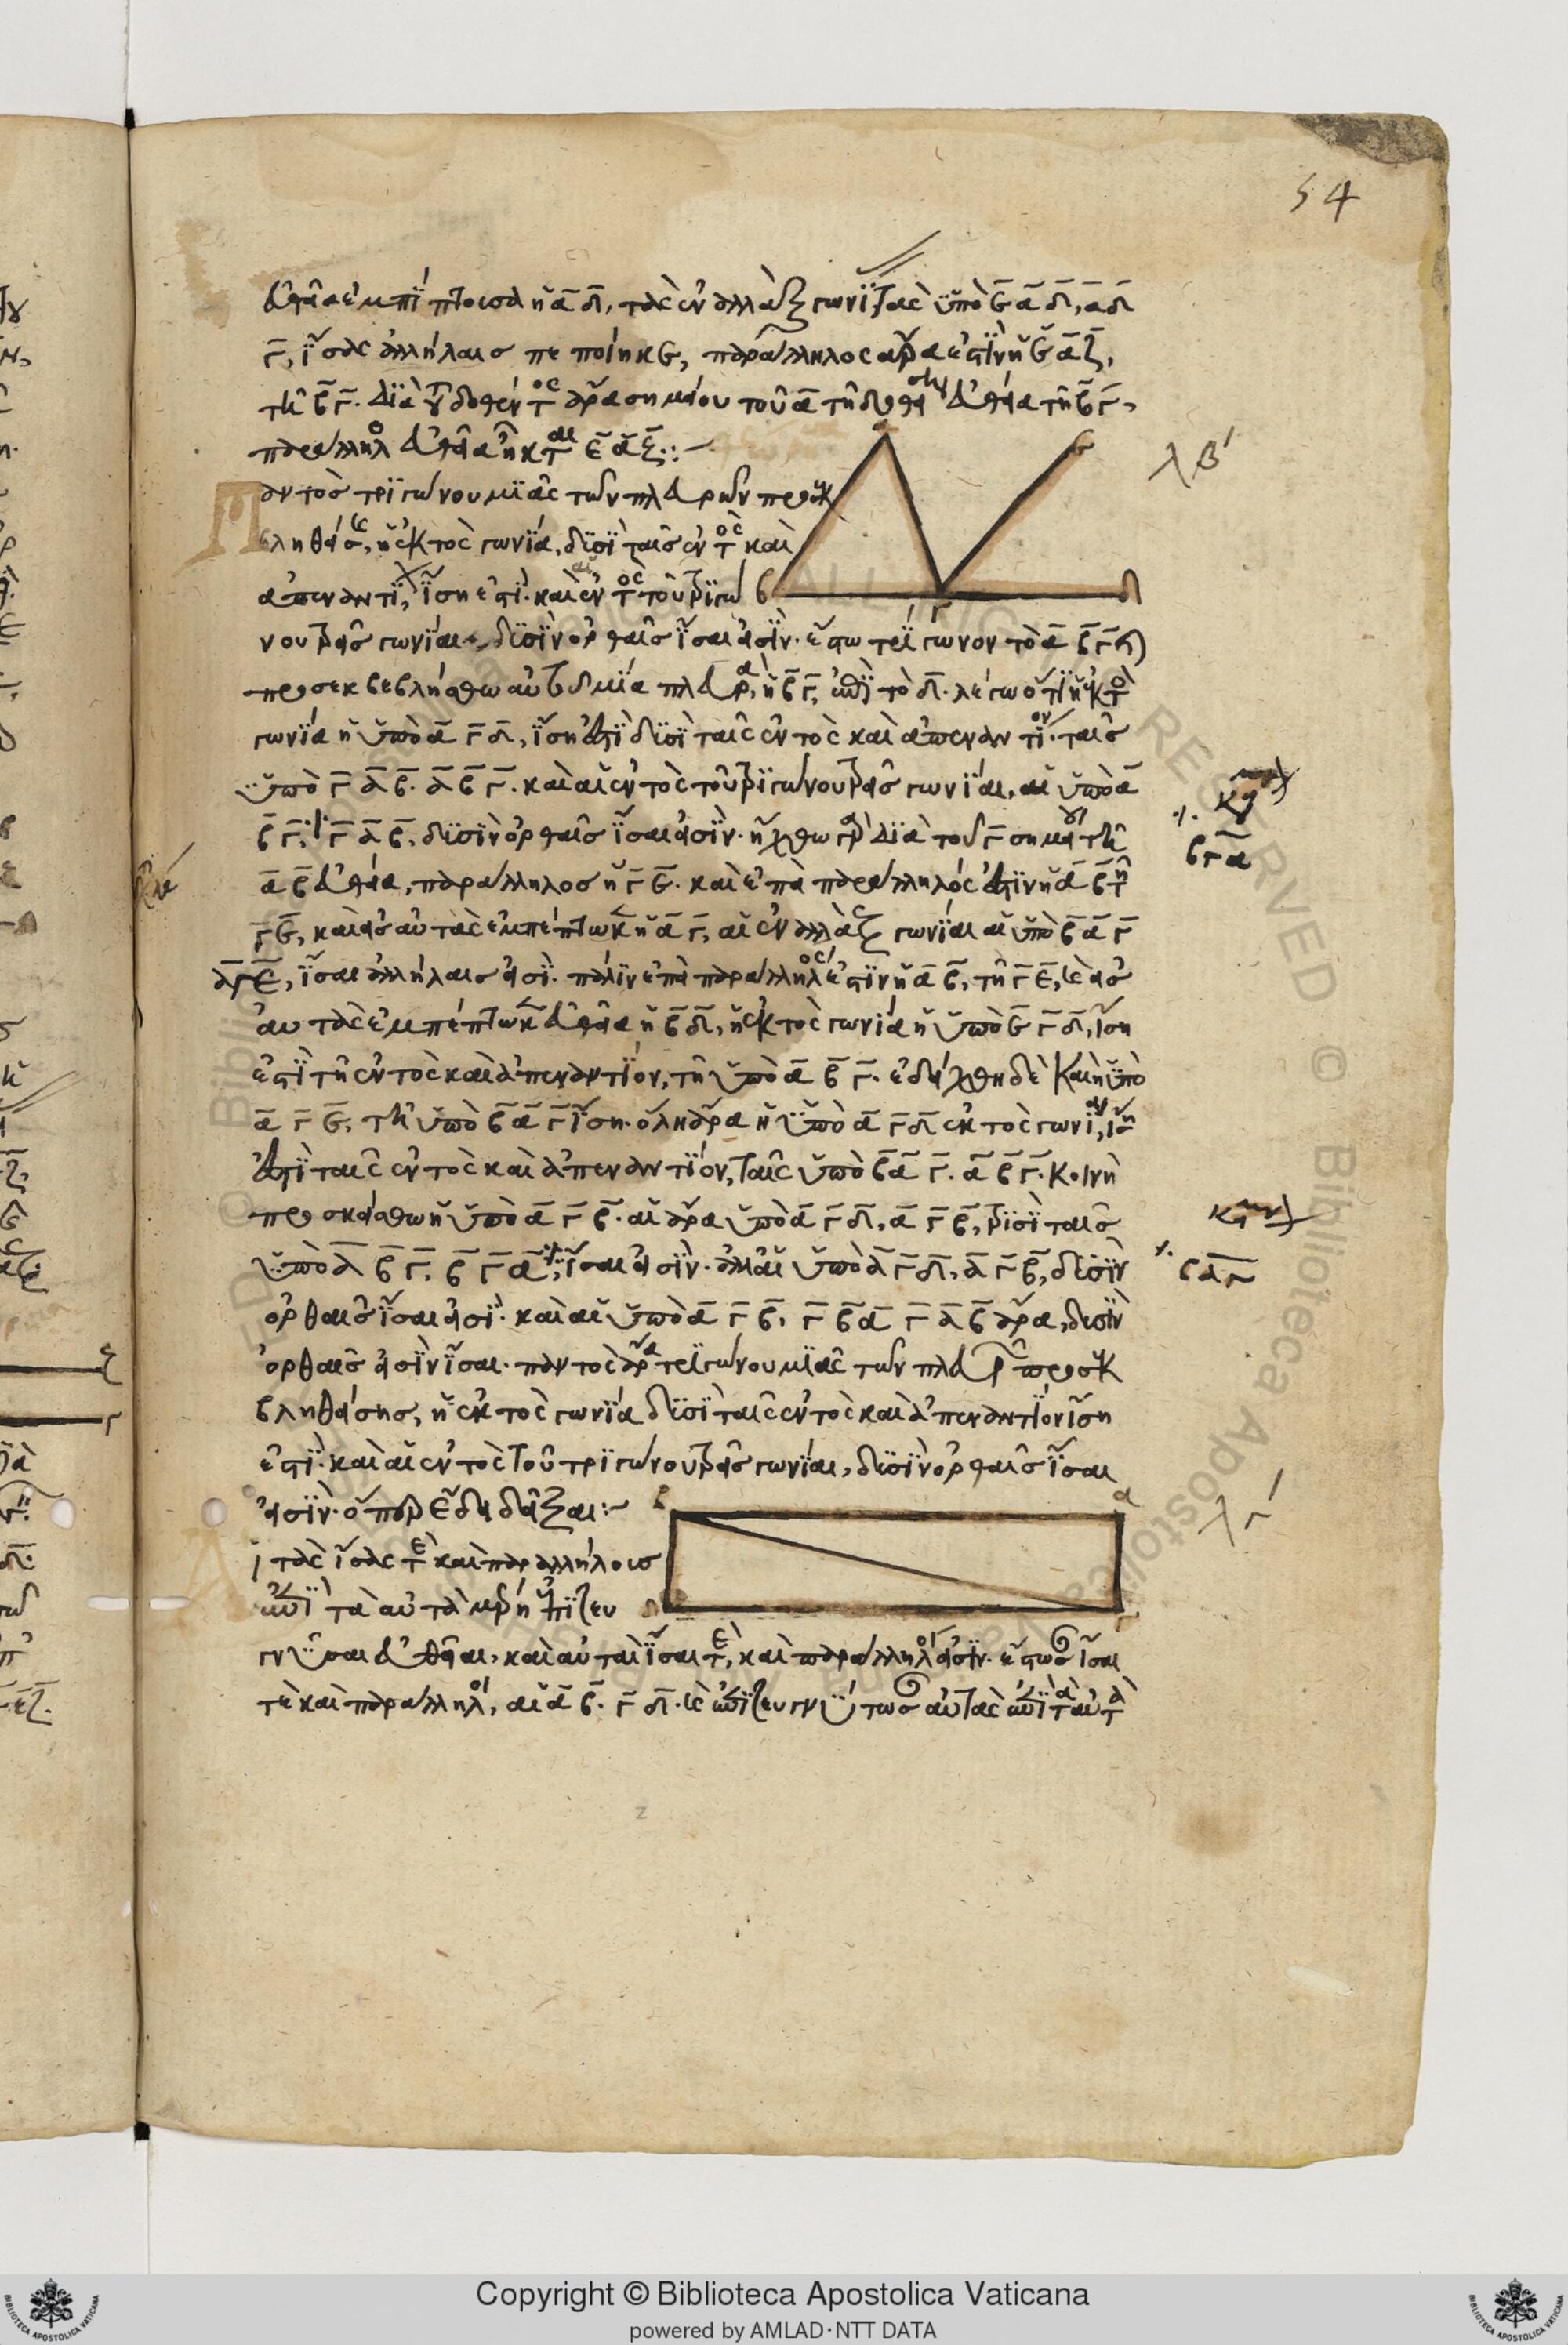 54
εὐθεῖα ἐμπίπτουσα ἡ α δ, τὰς ἐναλλὰξ γωνίας ὑπὸ ε α δ, α δ
γ, ἴσας ἀλλήλαις πεποίηκε, παράλληλος ἄρα ἐστὶν ἡ ε α ζ,
τῆ β γ. διὰ τοῦ δοθέντος ἄρα σημείου τοῦ α τῆ δοθείση εὐθεία τῆ β γ,
παράλληλος εὐθεῖα ἦκται ε α ζ :
λβ
αντὸσ τριγώνου μιᾶς τῶν πλευρῶν προσεκ
βληθείσης, ἡ ἐκτὸς γωνία, δυσὶ ταῖς ἐντὸς καὶ
ἀπεναντί, ἴση ἐστί. καὶ αἱ ἐντὸς τοῦ τριγώ
νου τρεῖς γωνίαι, δυσὶν ὀρθαῖς ἴσαι εἰσίν. ἔστω τρίγωνον τὸ α β γ
προσεκβεβλήσθω αὐτοῦ μία πλευρά, ἡ β γ, ἐπὶ τὸ δ. λέγω ὅτι ἡ ἐκτὸς
γωνία ἡ ὑπὸ α γ δ, ἴση ἐστὶ δυσὶ ταῖς ἐντὸς καὶ ἀπεναντίον. ταῖς
ὑπὸ γ α β. α β γ. καὶ αἱ ἐντὸς τοῦ τριγώνου τρεῖς γωνίαι, αἱ ὑπὸ α
β γ, γ α β, δυσὶν ὀρθαῖς ἴσαι εἰσίν. ἤχθω γὰρ διὰ τοῦ γ σημείου τῆ
β γ α
α β εὐθεία, παράλληλος ἡ γ ε. καὶ ἐπεὶ παράλληλός ἐστιν ἡ α β τῆ
γ ε, καὶ εἰς αὐτὰς ἐμπέπτωκεν ἡ α γ, αἱ ἐναλλὰξ γωνίαι αἱ ὑπὸ β α γ
α γ ε, ἴσαι ἀλλήλαις εἰσί. πάλιν ἐπεὶ παράλληλός ἐστιν ἡ α β, τῆ γ ε, καὶ εἰς
αὐτὰς ἐμπέπτωκεν εὐθεῖα ἡ β δ, ἡ ἐκτὸς γωνία ἡ ὑπὸ ε γ δ, ἴση
ἐστὶ τῆ ἐντὸς καὶ ἀπεναντίον, τῆ ὑπὸ α β γ. ἐδείχθη δὲ καὶ ἡ ὑπὸ
α γ ε, τῆ ὑπὸ β α γ ἴση. ὅλη ἄρα ἡ ὑπὸ α γ δ ἐκτὸς γωνία, ἴση
ἐστὶ ταῖς ἐντὸς καὶ ἀπεναντίον, ταῖς ὑπὸ β α γ. α β γ. κοινὴ
προσκείσθω ἡ ὑπὸ α γ β. αἱ ἄρα ὑπὸ α γ δ, α γ β, τρισὶ ταῖς
ὑπὸ α β γ, β γ α, ἴσαι εἰσίν. ἀλλ' αἱ ὑπὸ α γ δ, α γ β, δυσὶν
β α γ
ὀρθαῖς ἴσαι εἰσί. καὶ αἱ ὑπὸ α γ β, γ β α γ α β ἄρα, δυσὶν
ὀρθαῖς εἰσὶν ἴσαι. παντὸς ἄρα τριγώνου μιᾶς τῶν πλευρῶν προσεκ
βληθείσης, ἡ ἐκτὸς γωνία δυσὶ ταῖς ἐντὸς καὶ ἀπεναντίον ἴση
ἐστί. καὶ αἱ ἐντὸς τοῦ τριγώνου τρεῖς γωνίαι, δυσὶν ὀρθαῖς ἴσαι
εἰσίν. ὅπερ ἔδει δεῖξαι :
λγ
ἱ τὰς ἴσας τε καὶ παραλλήλους
ἐπὶ τὰ αὐτὰ μέρη ἐπιζευ
γνύουσαι εὐθεῖαι, καὶ αὐταὶ ἴσαι τε, καὶ παράλληλοί εἰσιν. ἔστωσαν ἴσαι
τὲ καὶ παράλληλοι, αἱ α β. γ δ. καὶ ἐπιζευγνύτωσαν αὐτὰς ἐπὶ τὰ αὐτὰ
Copyright © Biblioteca Apostolica Vaticana
powered by AMLAD·NTT DATA